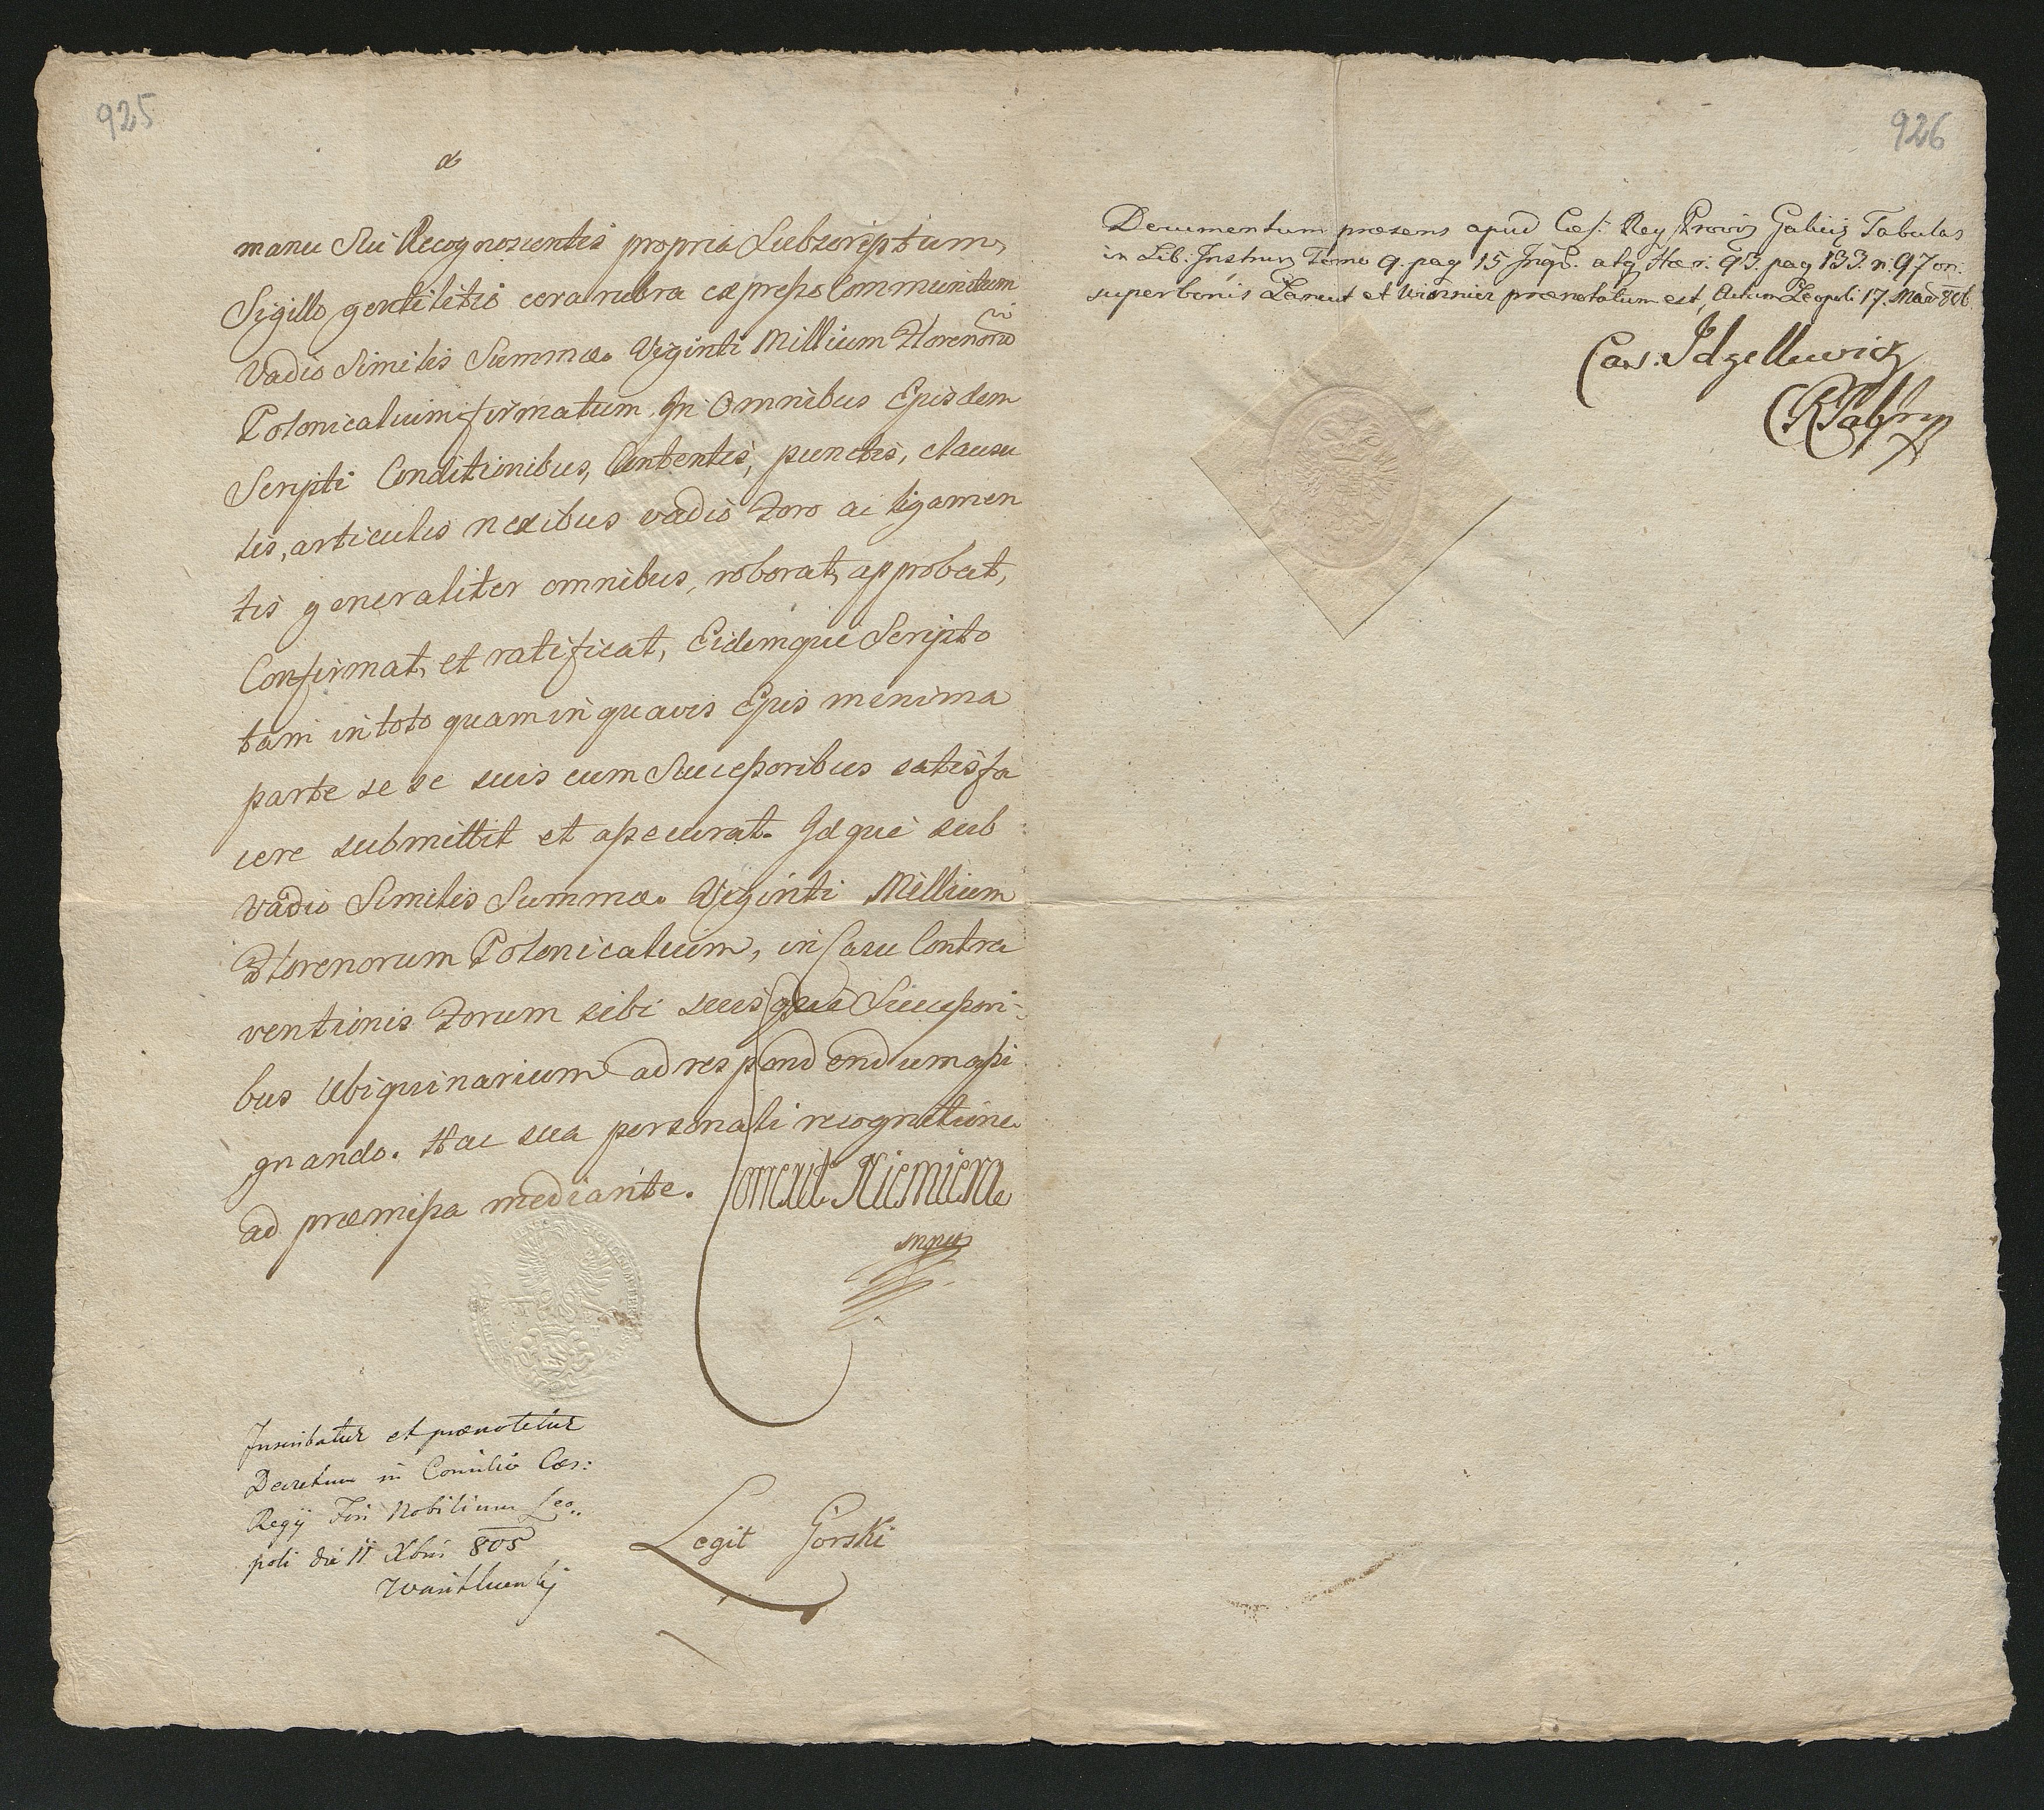 925
manu Sui Recognoscentis propria Subscriptum,
Sigillo gentilitio cera rubra expresso Communitum
Vadio Similis Summæ Viginti Millium Florenorū
Polonicalium firmatum In Omnibus Ejusdem
Scripti Conditionibus, Contentis, punctis, clausu
lis, articulis nexibus vadio Foro ac ligamen
tis generaliter omnibus, roborat, approbat,
Confirmat, et ratificat, Eidemque Scripto
tam in toto quam in quavis Ejus minima
parte se se suis cum Successoribus satisfa
cere submittit et assecurat. Idque sub
vadio Similis Summæ. Viginti Millium
Florenorum Polonicalium, in Casu Contra
ventionis Forum sibi suisque Successori-
bus Ubiquinarium ad respondendum assi
gnando. Hac sua personali recognitione
ad præmissa mediante. Konrad Niemiera
mpp
Inscribatur et prænotetur
Decretum in Consilio Cæs:
Regii Fori Nobilium Leo..
poli die 11 Xbris 805
Legit Gorski
926
Documentum præsens apud Cæs: Reg Provin Galici Tabulas
in Lib. Instrum Tomo 9. pag 15 Ingr. atq Hær: 93. pag 133. n: 97 on:
super bonis Łancut et prænotatum est, Actum Leopoli 17. Maii 806